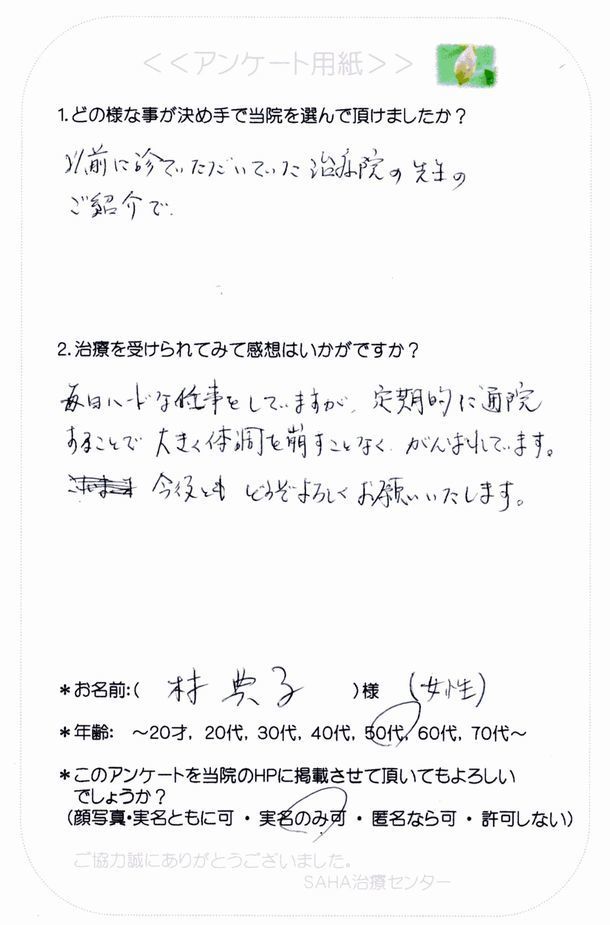 ＜＜アンケート用紙＞＞
1.どの様な事が決め手で当院を選んで頂けましたか？
以前に診ていただいていた治療院の先生の
ご紹介で.
2.治療を受けられてみて感想はいかがですか？
毎日ハードな仕事をしていますが、定期的に通院
することで 大きく体調を崩すことなく、がんばれています。
今後とも どうぞよろしくお願いいたします。
＊お名前:( 林 典子 )様 (女性)
＊年齢: ～20才, 20代, 30代, 40代, 50代, 60代, 70代～
＊このアンケートを当院のHPに掲載させて頂いてもよろしい
でしょうか？
(顔写真・実名ともに可 ・ 実名のみ可 ・ 匿名なら可 ・ 許可しない)
ご協力誠にありがとうございました。
SAHA治療センター